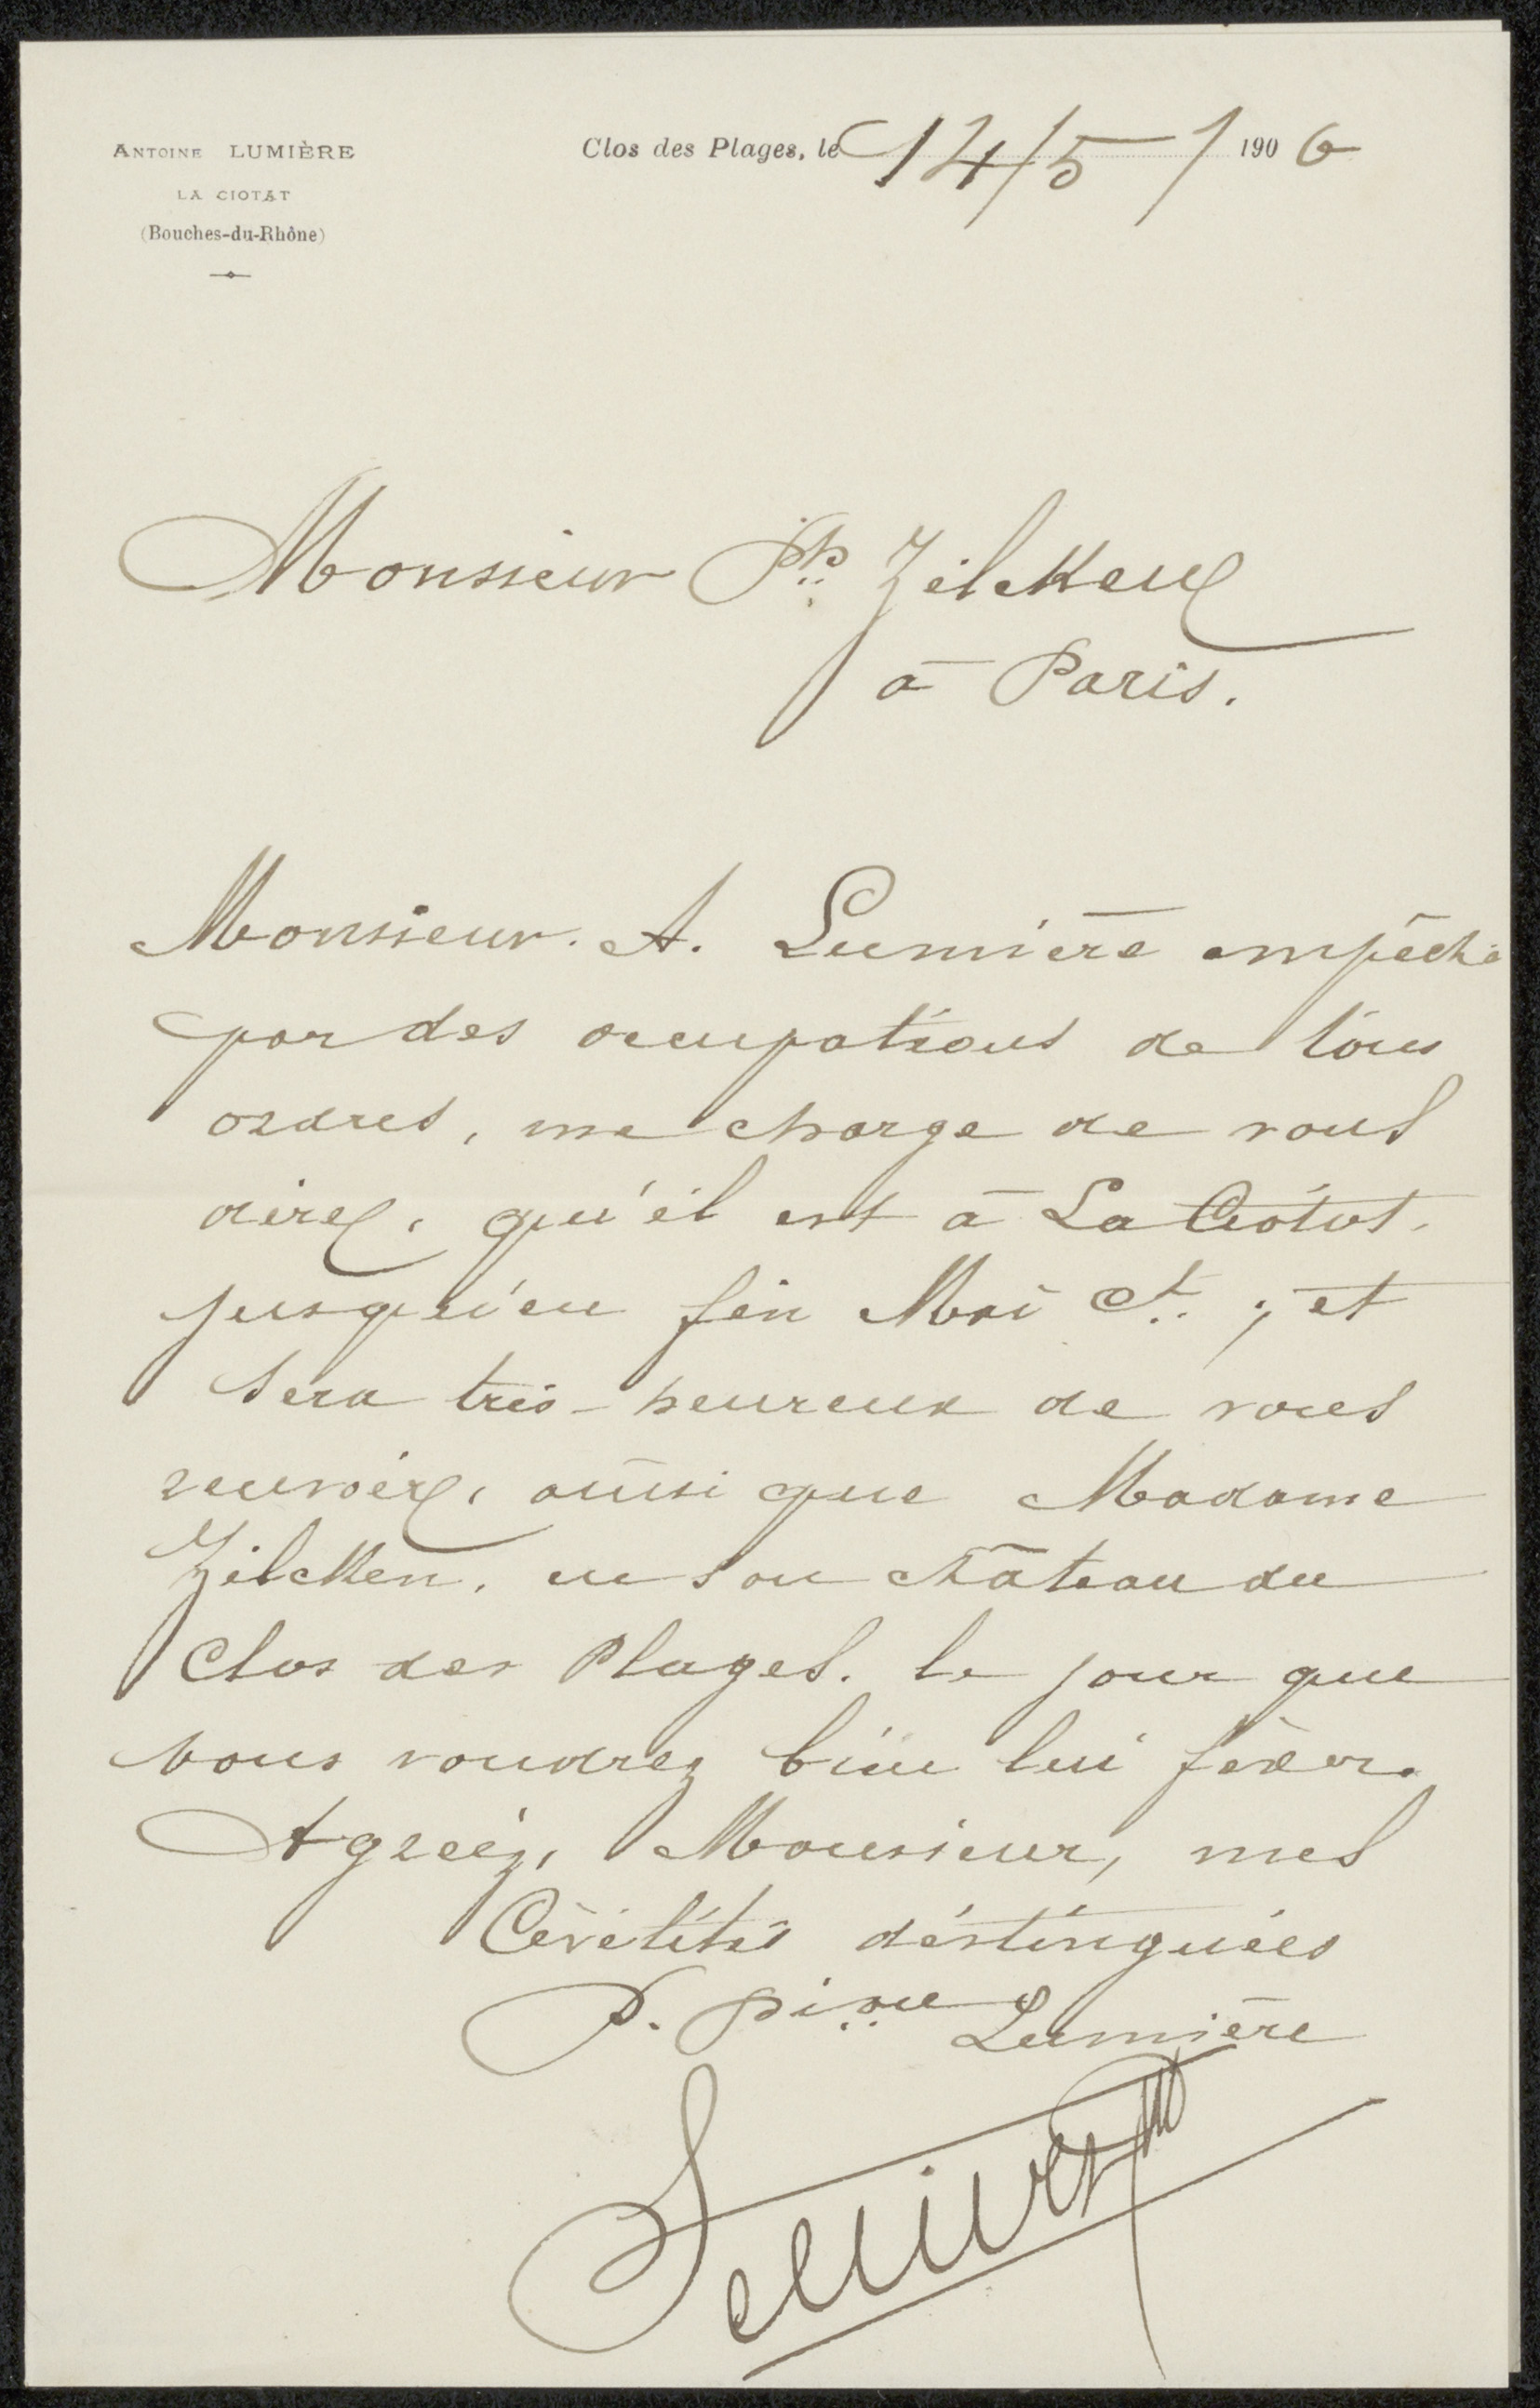 ANTOINE LUMIÈRE
LA CIOTAT
(Bouches-du-Rhône)
Clos des Plages, le 14/5/ 1906
Monsieur Ph Zilcken
à Paris.
Monsieur A. Lumière empêché
par des occupations de tous
ordres, me charge de vous
dire, qu'il est à La Ciotat
jusqu'en fin Mai Ct ; et
sera très-heureux de vous
recevoir, ainsi que Madame
Zilcken, en son château du
Clos des Plages. le jour que
vous voudrez bien lui fixer.
Agréez, Monsieur, mes
Civilités distinguées
P. Lumière